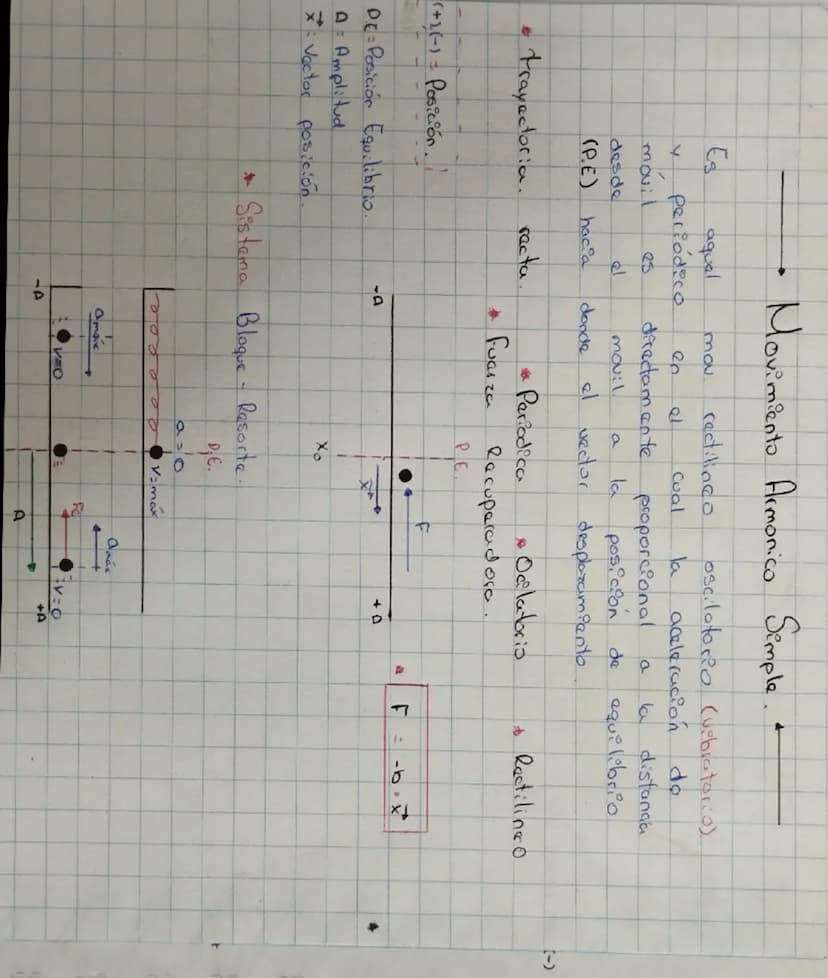 Movimiento Armonico Simple.
Es aquel mov rectilineo oscilatorio (vibratorio)
y periódico en el cual la aceleración de
móvil es directamente proporcional a la distancia
desde el móvil a la posición de equilibrio
(P.E) hacia donde el vector desplazamiento.
* trayectoria recta. * Periodica * Ocilatorio * Rectilineo
* Fuerza Recuperadora.
(+)(-) = Posición.
P.E = Posición Equilibrio.
A = Amplitud
x⃗ = Vector posición.
P.E.
F
-A
+A
x⃗
X₀
F = -b · x⃗
* Sistema Bloque - Resorte.
P.E.
a = 0
v = máx
amáx
amáx
v=0
Fe
v=0
-A
A
+A
(-)